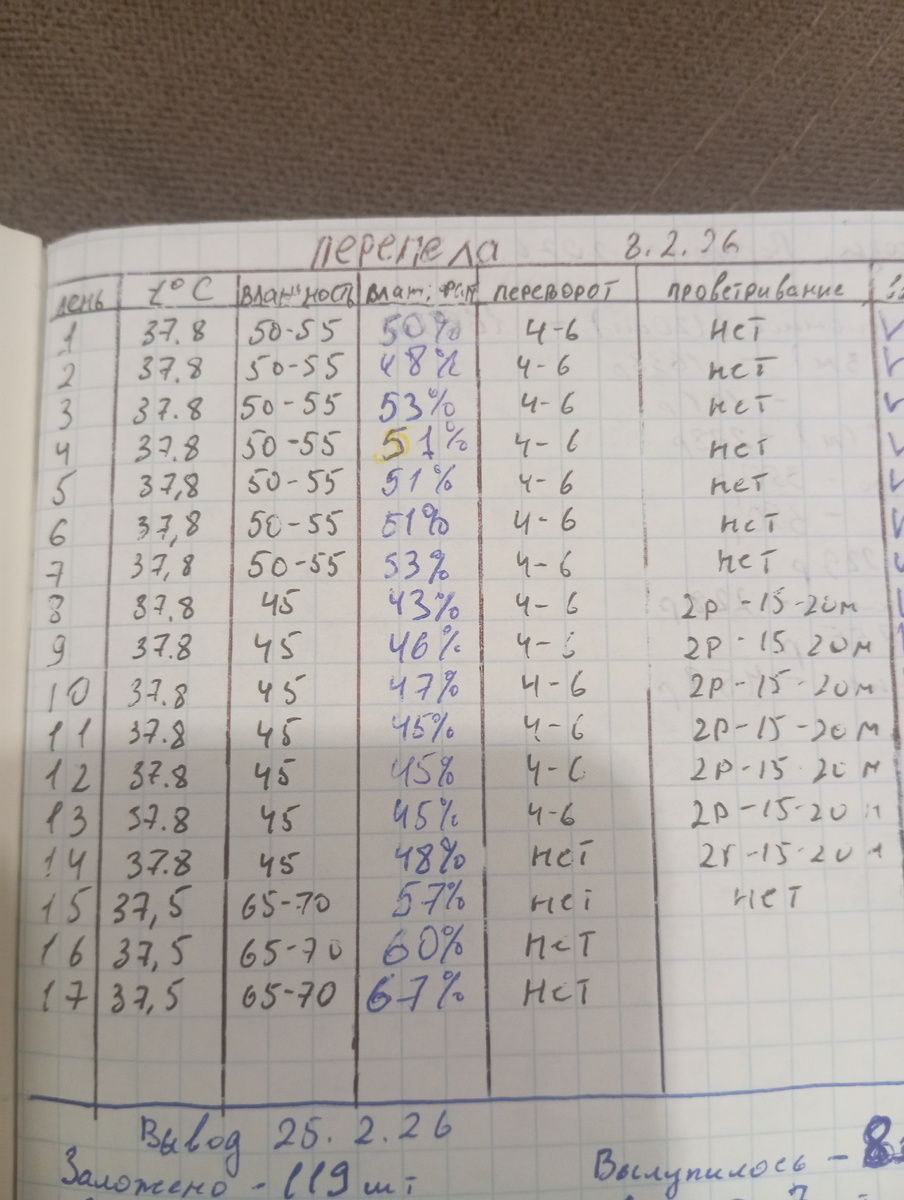 перепела 8.2.26
день t° C влажность влаж. факт переворот проветривание
1 37.8 50-55 50% 4-6 нет ✓
2 37.8 50-55 48% 4-6 нет ✓
3 37.8 50-55 53% 4-6 нет ✓
4 37.8 50-55 51% 4-6 нет ✓
5 37,8 50-55 51% 4-6 нет ✓
6 37,8 50-55 51% 4-6 нет ✓
7 37,8 50-55 53% 4-6 нет ✓
8 37.8 45 43% 4-6 2р-15-20м
9 37.8 45 46% 4-6 2р-15-20м
10 37.8 45 47% 4-6 2р-15-20м
11 37.8 45 45% 4-6 2р-15-20м
12 37.8 45 45% 4-6 2р-15-20м
13 37.8 45 45% 4-6 2р-15-20м
14 37.8 45 48% нет 2р-15-20м
15 37,5 65-70 57% нет нет
16 37,5 65-70 60% нет
17 37,5 65-70 67% нет
Вывод 25.2.26
Заложено - 119 шт Вылупилось -